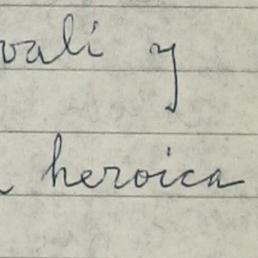 vali y
heroica